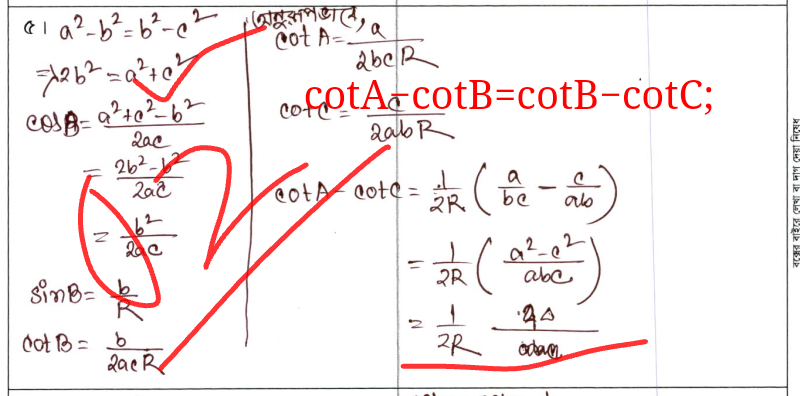 ৫। a²-b²=b²-c²
⇒2b²=a²+c²
cosB= a²+c²-b² / 2ac
= 2b²-b² / 2ac
= b² / 2ac
sinB= b / R
cotB= b / 2acR
অনুরূপভাবে,
cotA= a / 2bcR
cotA−cotB=cotB−cotC;
cotC= c / 2abR
cotA - cotC = 1/2R (a/bc - c/ab)
= 1/2R (a²-c² / abc)
= 1/2R
বক্সের বাইরে লেখা বা দাগ দেয়া নিষেধ